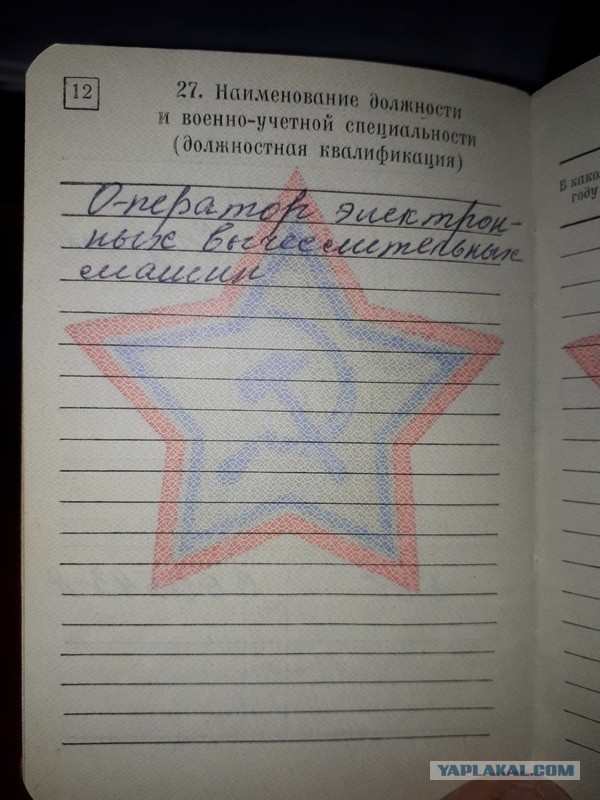 12
27. Наименование должности
и военно-учетной специальности
(должностная квалификация)
Оператор электрон-
ных вычислительных
машин
В како
году
YAPLAKAL.COM